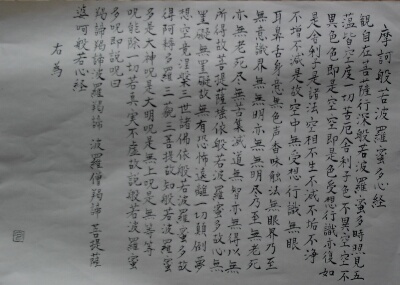 摩訶般若波羅蜜多心経
観自在菩薩行深般若波羅蜜多時照見五
蘊皆空度一切苦厄舎利子色不異空空不
異色色即是空空即是色受想行識亦復如
是舎利子是諸法空相不生不滅不垢不浄
不増不減是故空中無受想行識無眼
耳鼻舌身意無色声香味触法無眼界乃至
無意識界無無明亦無無明尽乃至無老死
亦無老死尽無苦集滅道無智亦無得以無
所得故菩提薩埵依般若波羅蜜多故心無
罣礙無罣礙故無有恐怖遠離一切顛倒夢
想究竟涅槃三世諸佛依般若波羅蜜多故
得阿耨多羅三藐三菩提故知般若波羅蜜
多是大神呪是大明呪是無上呪是無等等
呪能除一切苦真実不虚故説般若波羅蜜
多呪即説呪曰
羯諦羯諦波羅羯諦 波羅僧羯諦 菩提薩
婆呵般若心経
右為